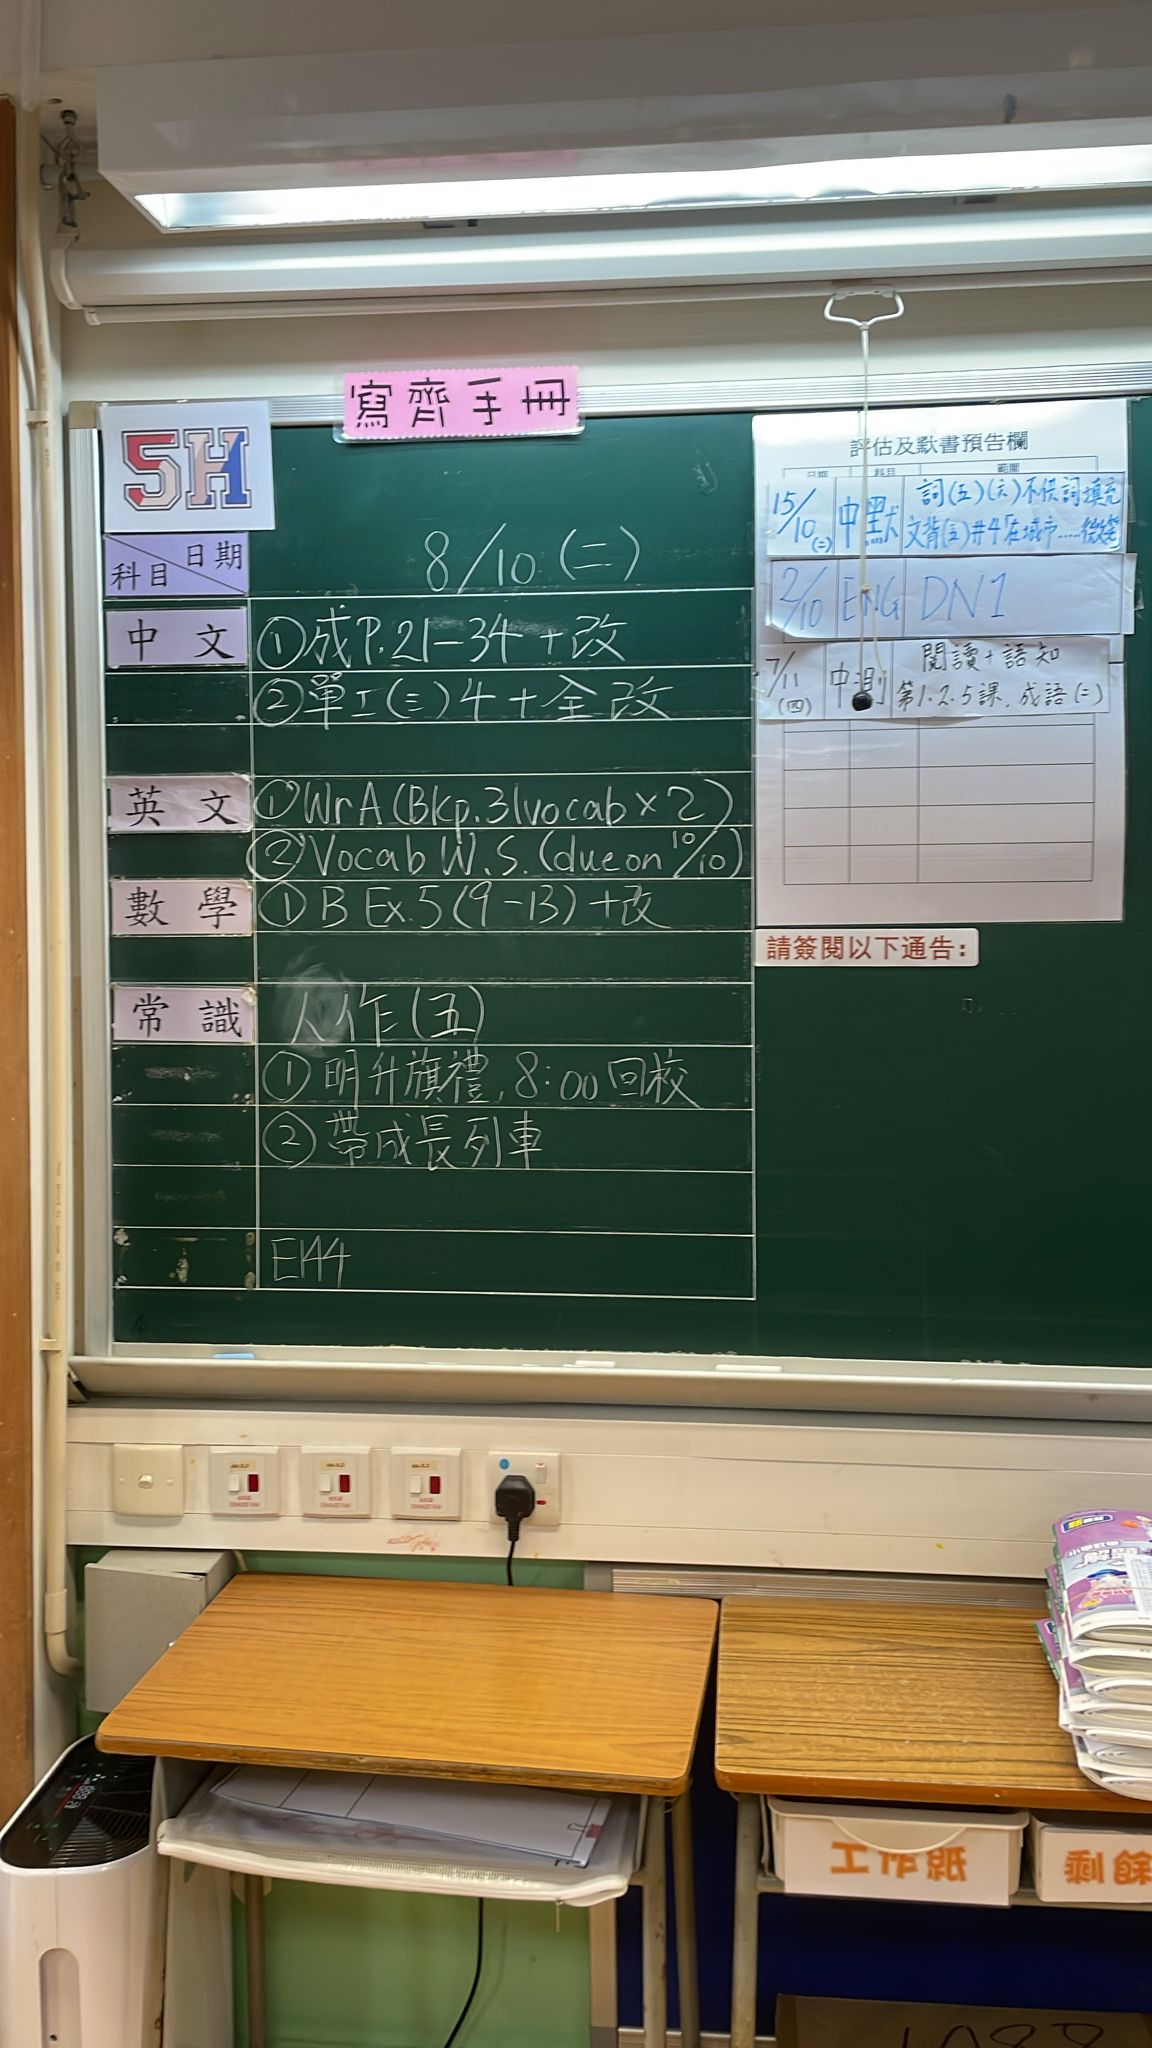 寫齊手冊
5H
日期
科目
8/10 (二)
中文
①成P.21-34+改
②單工(三)4+全改
英文
①WrA(Bkp.31vocab×2)
②Vocab W.S.(due on 10/10)
數學
①B Ex.5(9-13)+改
常識
人作(五)
①明升旗禮,8:00回校
②帶成長列車
E144
評估及默書預告欄
日期 科目 範圍
15/10(二) 中默 詞(五)(六)不供詞填充
文背(五)#4「在城市……微笑
2/10 ENG DN1
7/11(四) 中測 閱讀+語知
第1.2.5課,成語(二)
請簽閱以下通告:
剩餘